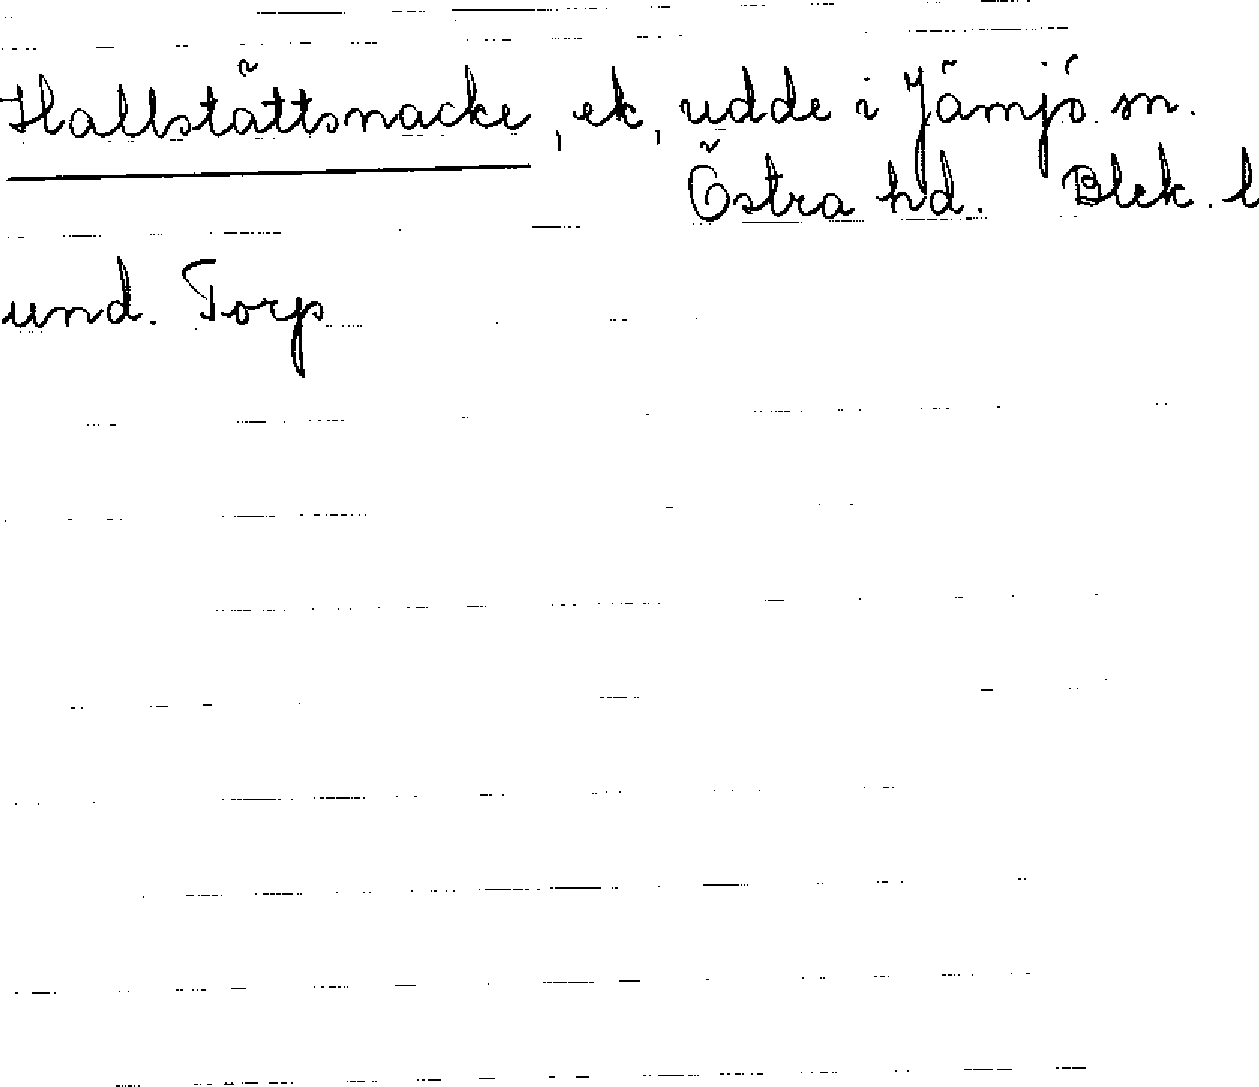 Hallstättsnacke, ek, udde i Jämjö sn.
Östra hd. Blek. l
und. Torp